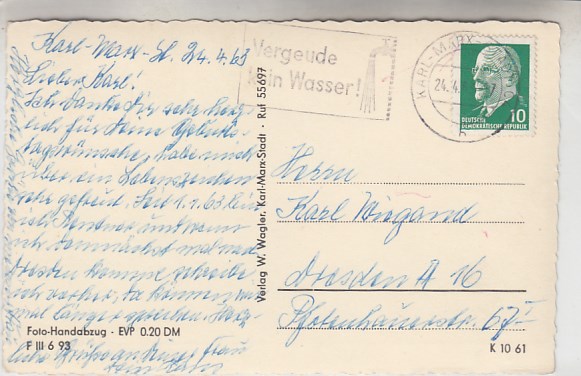 Karl-Marx-St. 24.4.63
Lieber Karl!
Ich danke Dir sehr herz-
lich für Deine Geburts-
tagswünsche, habe mich
über ein Lebenszeichen
sehr gefreut. Seit 1.1.63 bin
ich Rentner, und wenn
ich demnächst mal nach
Dresden komme schreibe
ich vorher, da können wir
mal länger sprechen. Herz-
liche Grüße an Deine Frau
Dein
Foto-Handabzug · EVP 0.20 DM
F III 6 93
Verlag W. Wagler, Karl-Marx-Stadt · Ruf 55697
Vergeude
kein Wasser!
KARL-MARX
24.4.
10
DEUTSCHE
DEMOKRATISCHE REPUBLIK
Herrn
Karl Wiegand
Dresden A 16
Pfotenhauerstr. 67 I
K 10 61